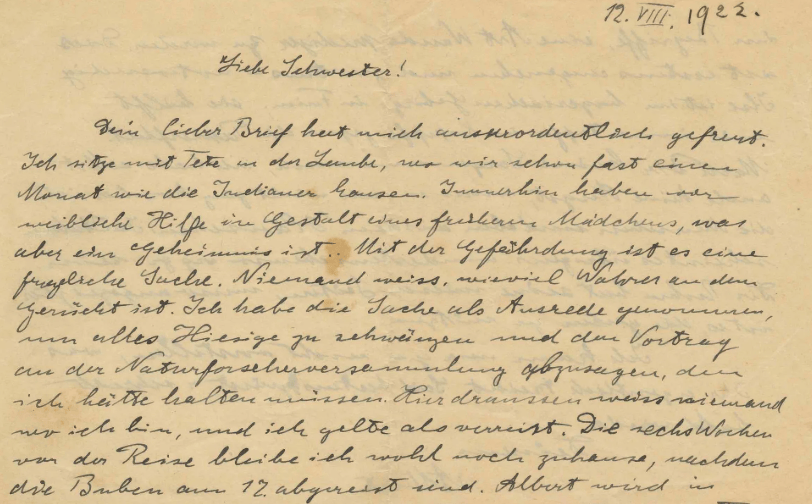 12. VIII. 1922.
Liebe Schwester!
Dein lieber Brief hat mich ausserordentlich gefreut.
Ich sitze mit Tete in der Laube, wo wir schon fast einen
Monat wie die Indianer hausen. Immerhin haben wir
weibliche Hilfe in Gestalt eines früheren Mädchens, was
aber ein Geheimnis ist.. Mit der Gefährdung ist es eine
fragliche Sache. Niemand weiss, wieviel Wahres an dem
Gerücht ist. Ich habe die Sache als Ausrede genommen,
um alles Hiesige zu schwänzen und den Vortrag
an der Naturforscherversammlung abzusagen, den
ich hätte halten müssen. Hier draussen weiss niemand
wo ich bin, und ich gelte als verreist. Die sechs Wochen
vor der Reise bleibe ich wohl noch zuhause, nachdem
die Buben am 17. abgereist sind. Albert wird in